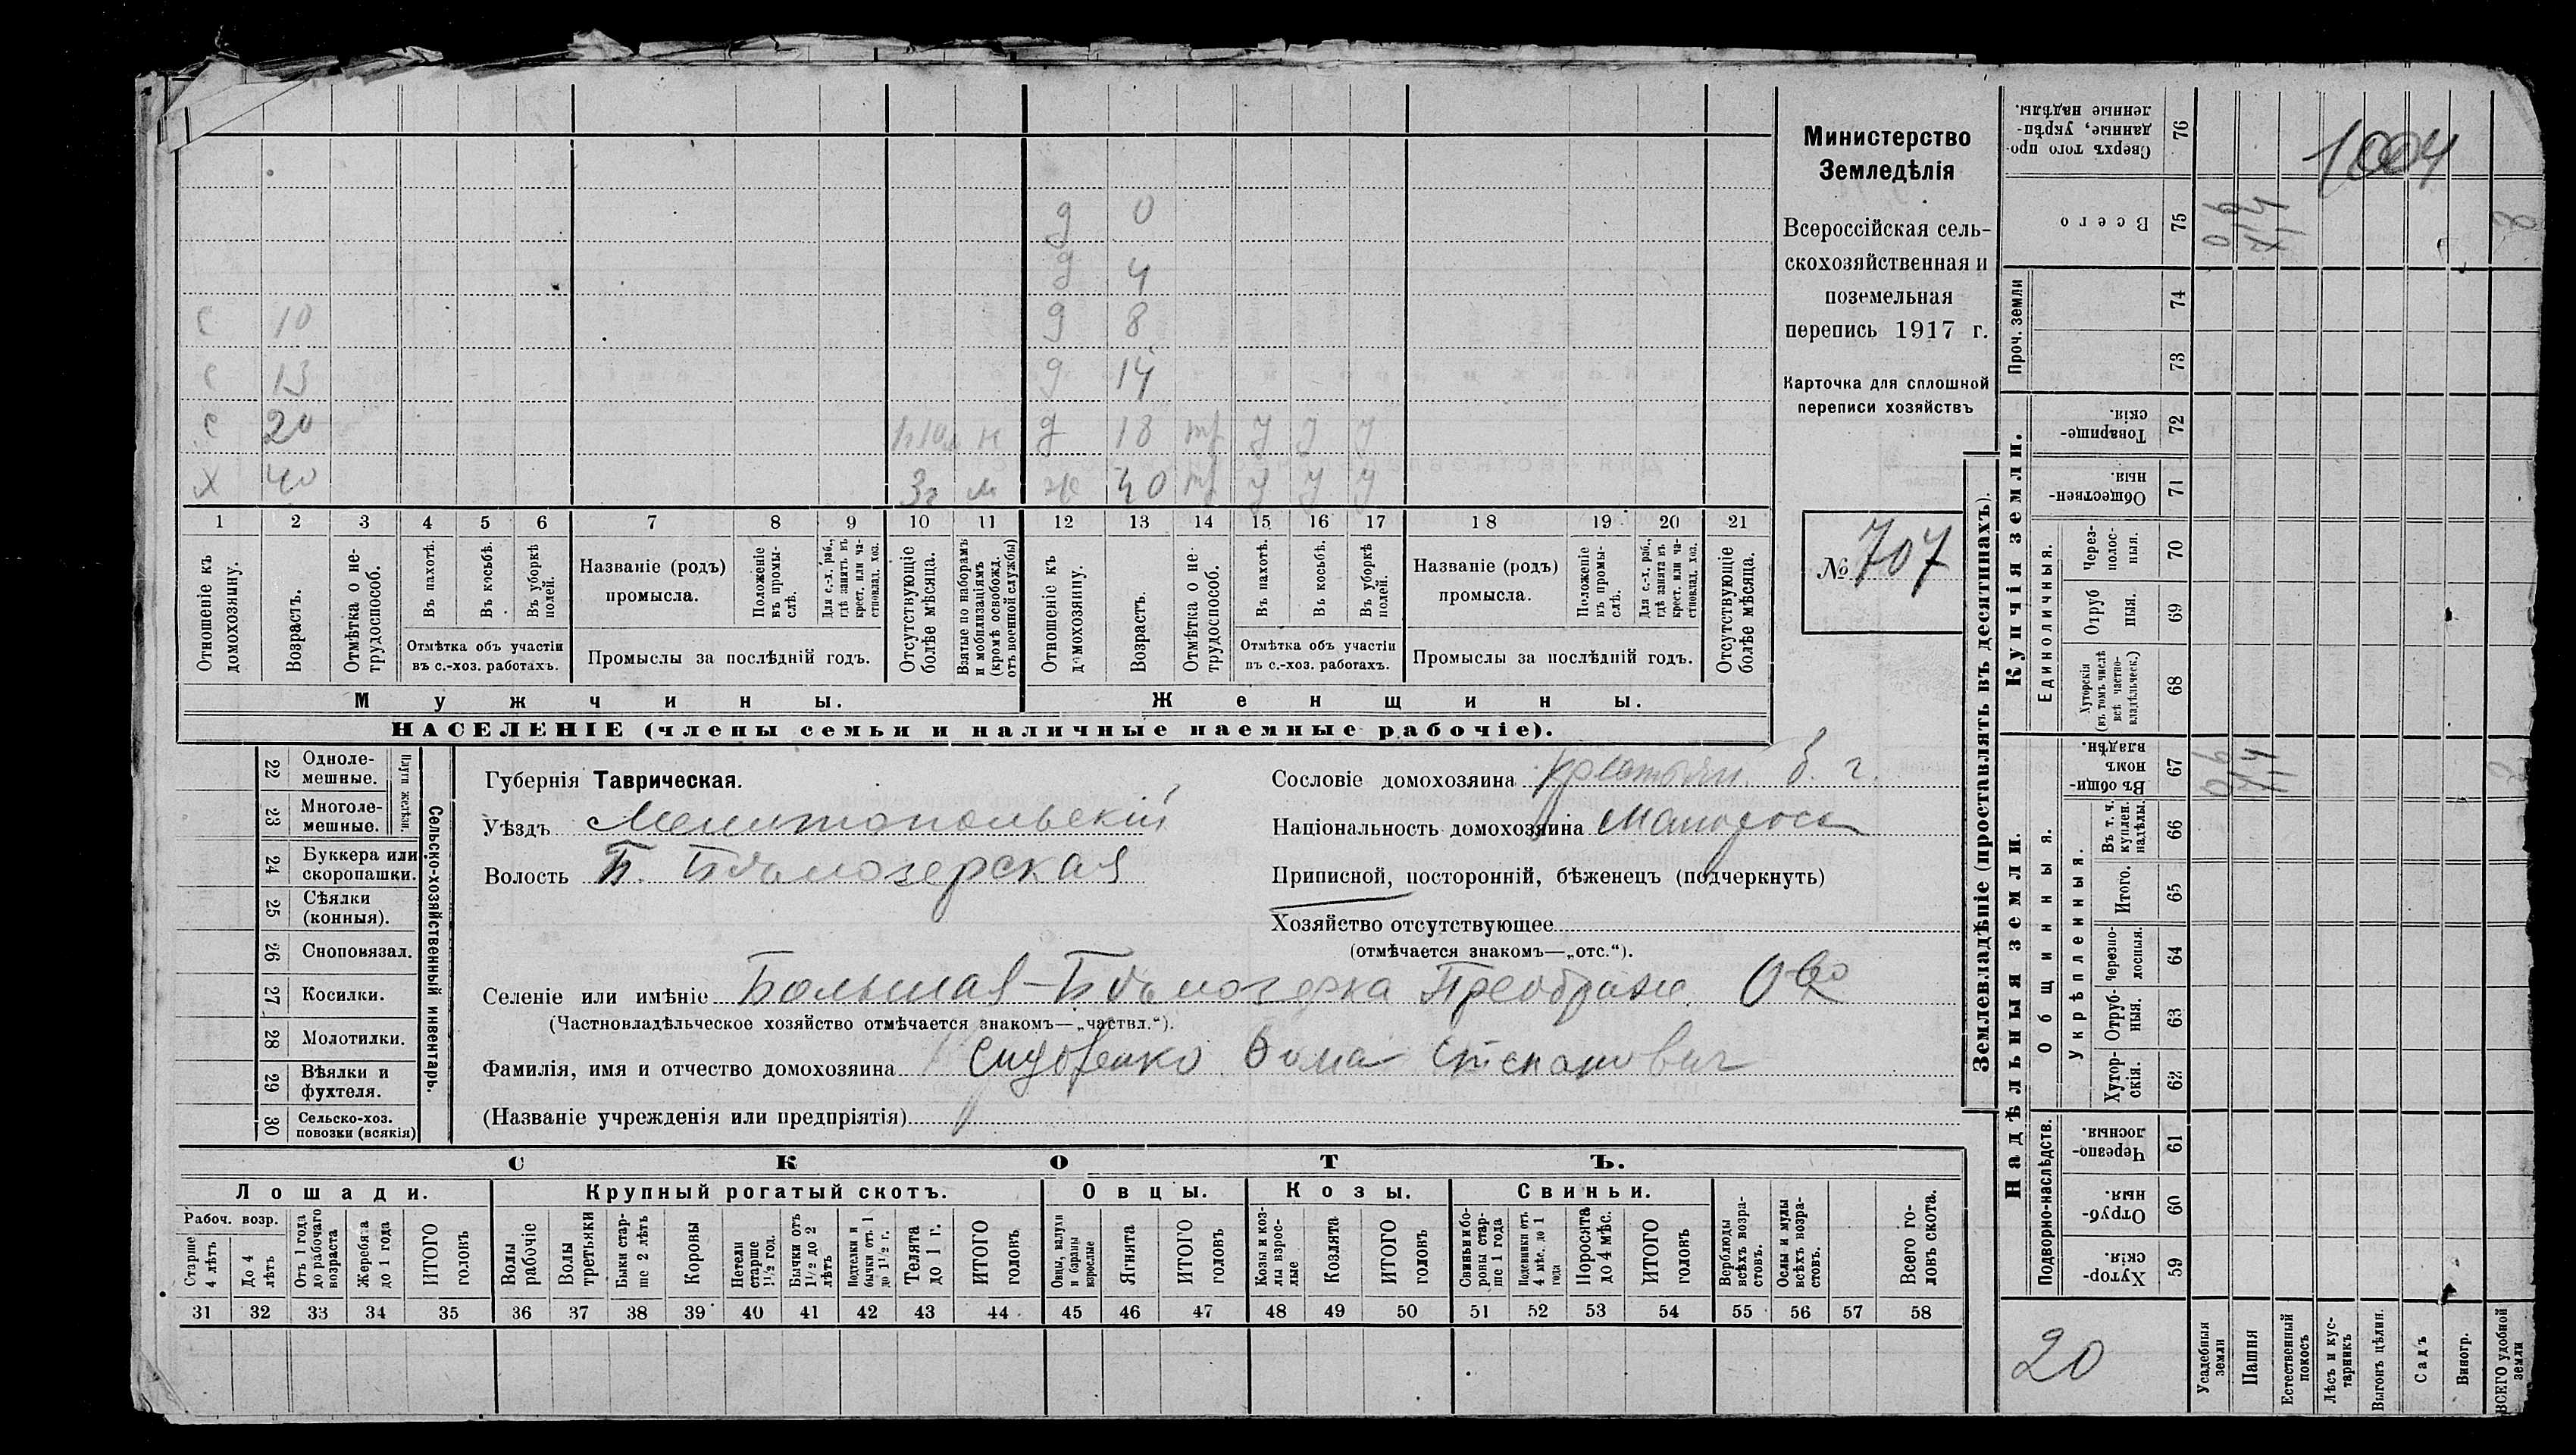 с 10
с 13
с 20 н
х 40 3г м
д 0
д 4
д 8
д 14
д 18
ж 40
1 2 3 4 5 6 7 8 9 10 11 12 13 14 15 16 17 18 19 20 21
Отношеніе къ домохозяину.
Возрастъ.
Отмѣтка о нетрудоспособ.
Въ пахотѣ.
Въ косьбѣ.
Въ уборкѣ полей.
Отмѣтка объ участіи
въ с.-хоз. работахъ.
Названіе (родъ)
промысла.
Положеніе въ промыслѣ.
Для с.-х. раб., гдѣ занятъ въ крест. или частновлад. хоз.
Промыслы за послѣдній годъ.
Отсутствующіе болѣе мѣсяца.
Взятые по наборамъ и мобилизаціямъ (кромѣ освобожд. отъ военной службы)
Отношеніе къ домохозяину.
Возрастъ.
Отмѣтка о нетрудоспособ.
Въ пахотѣ.
Въ косьбѣ.
Въ уборкѣ полей.
Отмѣтка объ участіи
въ с.-хоз. работахъ.
Названіе (родъ)
промысла.
Положеніе въ промыслѣ.
Для с.-х. раб., гдѣ занята въ крест. или частновлад. хоз.
Промыслы за послѣдній годъ.
Отсутствующіе болѣе мѣсяца.
Мужчины. Женщины.
НАСЕЛЕНІЕ (члены семьи и наличные наемные рабочіе).
Министерство
Земледѣлія
Всероссійская сель-
скохозяйственная и
поземельная
перепись 1917 г.
Карточка для сплошной
переписи хозяйствъ
№ 707
22 Одноле-
мешные.
23 Многоле-
мешные.
Плуги желѣзн.
24 Буккера или
скоропашки.
25 Сѣялки
(конныя).
26 Сноповязал.
27 Косилки.
28 Молотилки.
29 Вѣялки и
фухтеля.
30 Сельско-хоз.
повозки (всякія)
Сельско-хозяйственный инвентарь.
Губернія Таврическая.
Уѣздъ Мелитопольскій
Волость Б. Бѣлозерская
Сословіе домохозяина крестьян. б. г.
Національность домохозяина Малоросс
Приписной, посторонній, бѣженецъ (подчеркнуть)
Хозяйство отсутствующее
(отмѣчается знакомъ—„отс.“).
Селеніе или имѣніе Большая-Бѣлозерка Преображ. О-во
(Частновладѣльческое хозяйство отмѣчается знакомъ—„частвл.“).
Фамилія, имя и отчество домохозяина Ѳома Степанович
(Названіе учрежденія или предпріятія)
СКОТЪ.
Лошади. Крупный рогатый скотъ. Овцы. Козы. Свиньи.
Рабоч. возр.
Старше 4 лѣтъ
До 4 лѣтъ
Отъ 1 года до рабочаго возраста
Жеребята до 1 года
ИТОГО головъ
Волы рабочіе
Волы третьяки
Быки старше 2 лѣтъ
Коровы
Петели старше 1½ год.
Бычки отъ 1½ до 2 лѣтъ
Подтелки и бычки отъ 1 до 1½ г.
Телята до 1 г.
ИТОГО головъ
Овцы, валухи и бараны взрослые
Ягнята
ИТОГО головъ
Козы и козлы взрослые
Козлята
ИТОГО головъ
Свиньи и боровы старше 1 года
Подсвинки отъ 4 мѣс. до 1 года
Поросята до 4 мѣс.
ИТОГО головъ
Верблюды всѣхъ возрастовъ.
Ослы и мулы всѣхъ возрастовъ.
Всего головъ скота.
31 32 33 34 35 36 37 38 39 40 41 42 43 44 45 46 47 48 49 50 51 52 53 54 55 56 57 58
Землевладѣніе (проставлять въ десятинахъ).
Купчія земли.
Надѣльныя земли.
Сверхъ того проданные, укрѣпленные надѣлы. 76
Всего 75
Проч. земли
74
73
Товарищескія. 72
Общественныя 71
Единоличныя.
Черезполосныя. 70
Отрубныя. 69
Хуторскія (въ томъ числѣ всѣ частновладѣльческ.) 68
Общинныя.
Въ общинномъ владѣн. 67
Укрѣпленныя.
Въ т. ч. куплен. надѣлы. 66
Итого. 65
Черезполосныя. 64
Отрубныя. 63
Хуторскія. 62
Подворно-наслѣдств.
Черезполосныя. 61
Отрубныя. 60
Хуторскія. 59
Усадебныя земли
Пашня
Естественный покосъ
Лѣсъ и кустарникъ
Выгонъ цѣлин.
Садъ
Виногр.
ВСЕГО удобной земли
1004
20